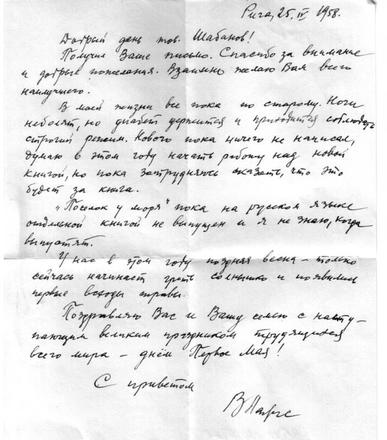 Рига, 25. IV. 1958.
Добрый день тов. Шабанов!
Получил Ваше письмо. Спасибо за внимание
и добрые пожелания. Взаимно желаю Вам всего
наилучшего.
В моей жизни все пока по старому. Ноги
не болят, но диабет держится и приходится соблюдать
строгий режим. Нового пока ничего не написал,
думаю в этом году начать работу над новой
книгой, но пока затрудняюсь сказать, что это
будет за книга.
„Поселок у моря" пока на русском языке
отдельной книгой не выпущен и я не знаю, когда
выпустят.
У нас в этом году поздняя весна – только
сейчас начинает греть солнышко и появились
первые всходы травы.
Поздравляю Вас и Вашу семью с насту-
пающим великим праздником трудящихся
всего мира – днём Первое Мая!
С приветом
ВЛацис